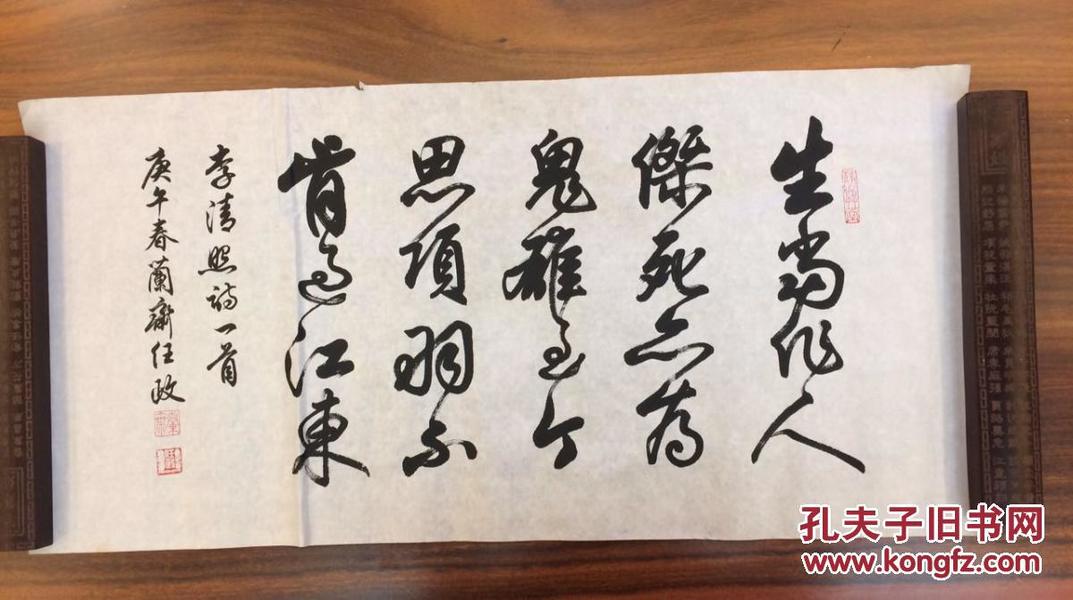 生當作人
傑死亦為
鬼雄至今
思項羽不
肯過江東
李清照詩一首
庚午春蘭齋任政
孔夫子旧书网
www.kongfz.com